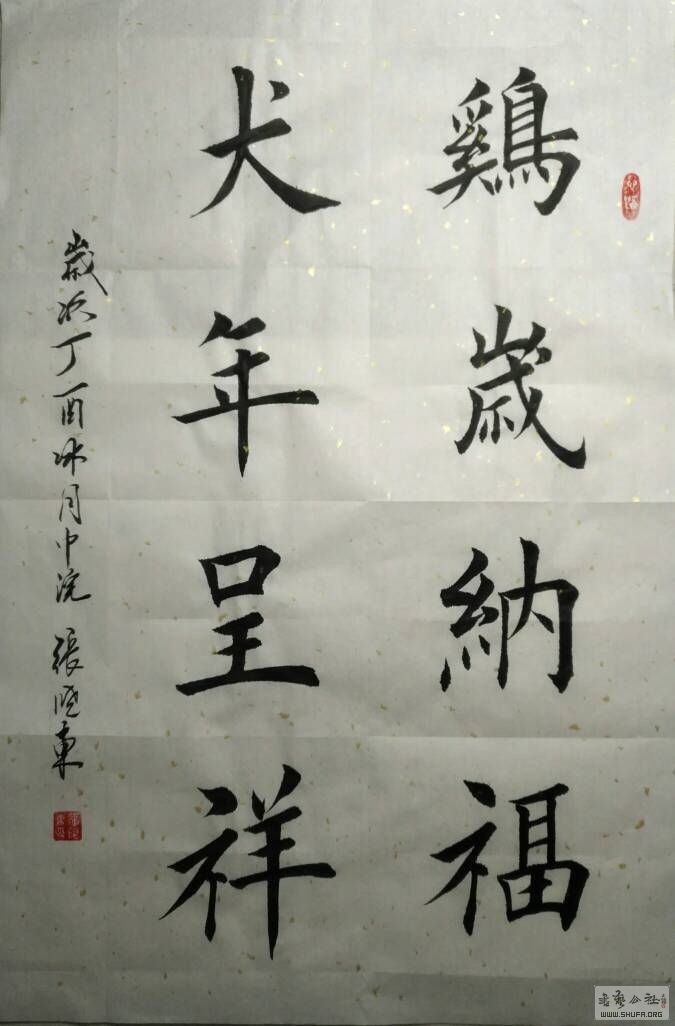 鷄歲納福
犬年呈祥
歲次丁酉冰月中浣 張曉東
书艺公社
WWW.SHUFA.ORG